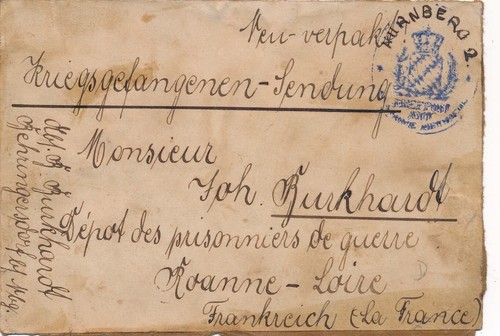 Neu-verpakt
NÜRNBERG 2.
Kriegsgefangenen-Sendung
Monsieur
Joh. Burkhardt
Dépôt des prisonniers de guerre
Roanne-Loire
Frankreich (La France)
Abs. J. Burkhardt
Behringersdorf b/ Nbg.